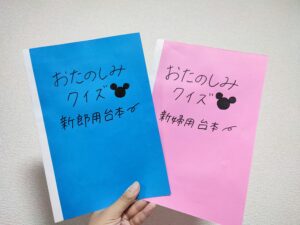 おたのしみ
クイズ
新郎用台本
おたのしみ
クイズ
新婦用台本